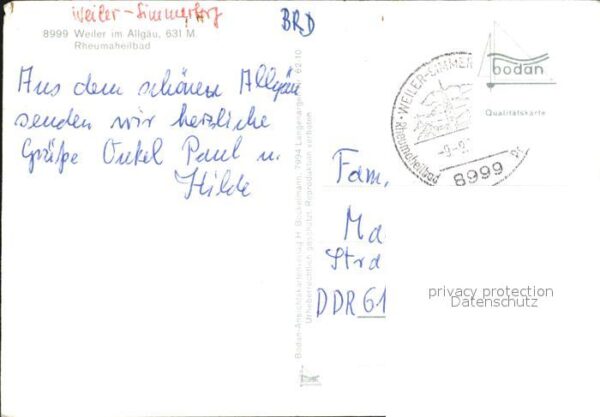 Weiler-Simmerberg
BRD
8999 Weiler im Allgäu, 631 M.
Rheumaheilbad
Aus dem schönen Allgäu
senden wir herzliche
Grüße Onkel Paul u.
Hilde
Bodan-Ansichtskartenverlag H. Bockelmann, 7994 Langenargen
Urheberrechtlich geschützt. Reproduktion verboten
bodan
Qualitätskarte
WEILER-SIMMER
Rheumaheilbad
8999
Fam.
Ma
Str
DDR 61
privacy protection
Datenschutz